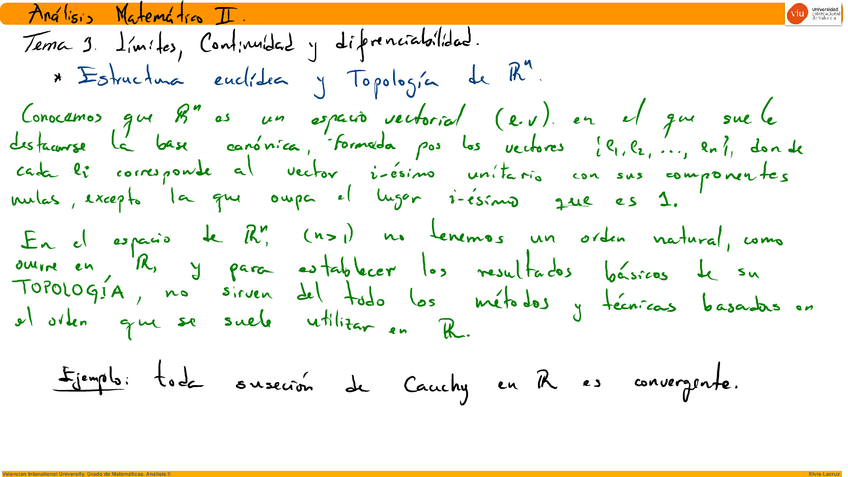 Análisis Matemático II.
viu Universidad Internacional de Valencia
Tema 3. Límites, Continuidad y diferenciabilidad.
* Estructura euclídea y Topología de ℝⁿ.
Conocemos que ℝⁿ es un espacio vectorial (e.v). en el que suele
destacarse la base canónica, formada pos los vectores {e₁, e₂, ..., en}, donde
cada ei corresponde al vector i-ésimo unitario con sus componentes
nulas, excepto la que ocupa el lugar i-ésimo que es 1.
En el espacio de ℝⁿ, (n>1) no tenemos un orden natural, como
ocurre en ℝ, y para establecer los resultados básicos de su
TOPOLOGÍA, no sirven del todo los métodos y técnicas basadas en
el orden que se suele utilizar en ℝ.
Ejemplo: toda suseción de Cauchy en ℝ es convergente.
Valencian International University. Grado de Matemáticas. Análisis II.
Silvia Lacruz.